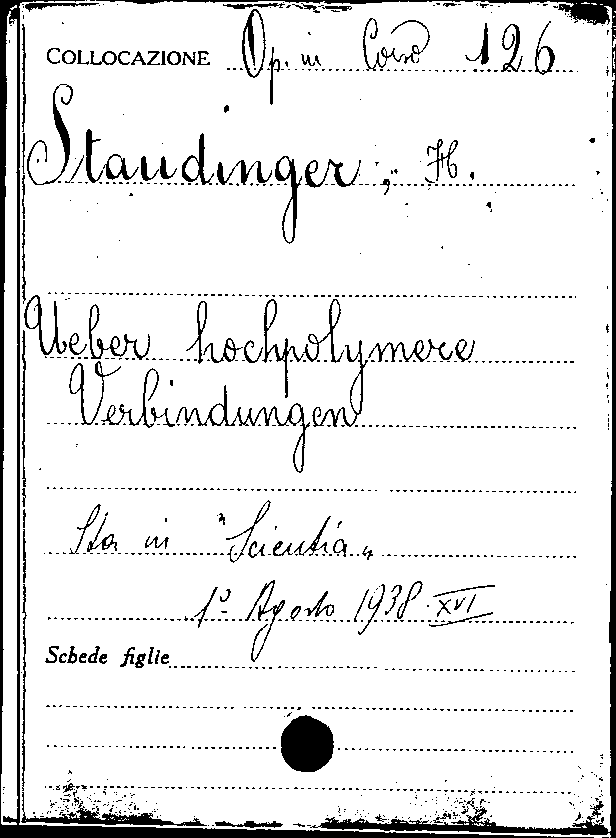 COLLOCAZIONE Op. in Corso 126
Staudinger, H.
Ueber hochpolymere
Verbindungen
Sta in "Scientia"
1º Agosto 1938 XVI
Schede figlie